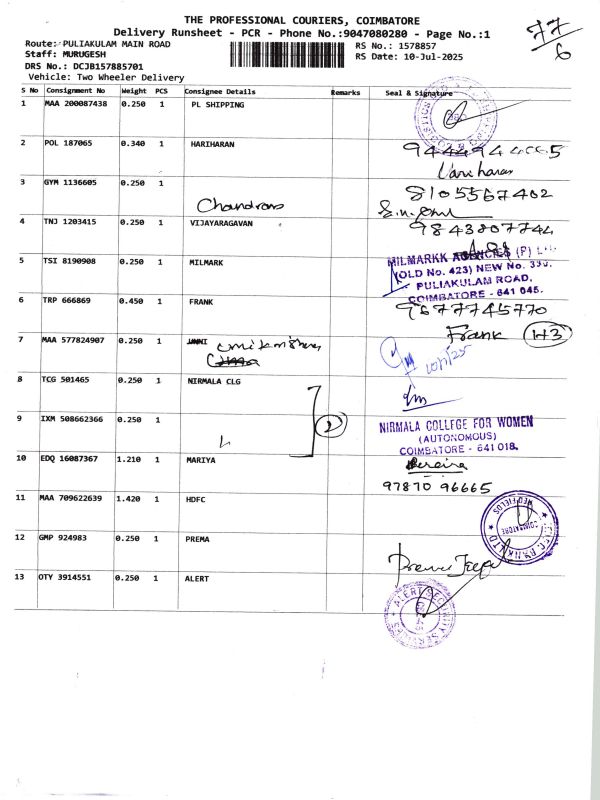 THE PROFESSIONAL COURIERS, COIMBATORE
Delivery Runsheet - PCR - Phone No.:9047080280 - Page No.:1
77
6
Route: PULIAKULAM MAIN ROAD
Staff: MURUGESH
DRS No.: DCJB157885701
Vehicle: Two Wheeler Delivery
RS No.: 1578857
RS Date: 10-Jul-2025
S No Consignment No Weight PCS Consignee Details Remarks Seal & Signature
1 MAA 200087438 0.250 1 PL SHIPPING
2 POL 187065 0.340 1 HARIHARAN
Hariharan
3 GYM 1136605 0.250 1 8105567402
Chandran
4 TNJ 1203415 0.250 1 VIJAYARAGAVAN 9843807744
5 TSI 8190908 0.250 1 MILMARK
MILMARKK AGENCIES (P) LTD.
(OLD No. 423) NEW No. 330.
PULIAKULAM ROAD.
COIMBATORE - 641 045.
6 TRP 666869 0.450 1 FRANK 9677745770
Frank 1+3
7 MAA 577824907 0.250 1
10/7/25
8 TCG 501465 0.250 1 NIRMALA CLG
2
9 IXM 508662366 0.250 1
NIRMALA COLLEGE FOR WOMEN
(AUTONOMOUS)
COIMBATORE - 641 018.
10 EDQ 16087367 1.210 1 MARIYA
97870 96665
11 MAA 709622639 1.420 1 HDFC
HDFC BANK LTD
COIMBATORE
12 GMP 924983 0.250 1 PREMA
Prema
13 OTY 3914551 0.250 1 ALERT
ALERT SECURITY SERVICES